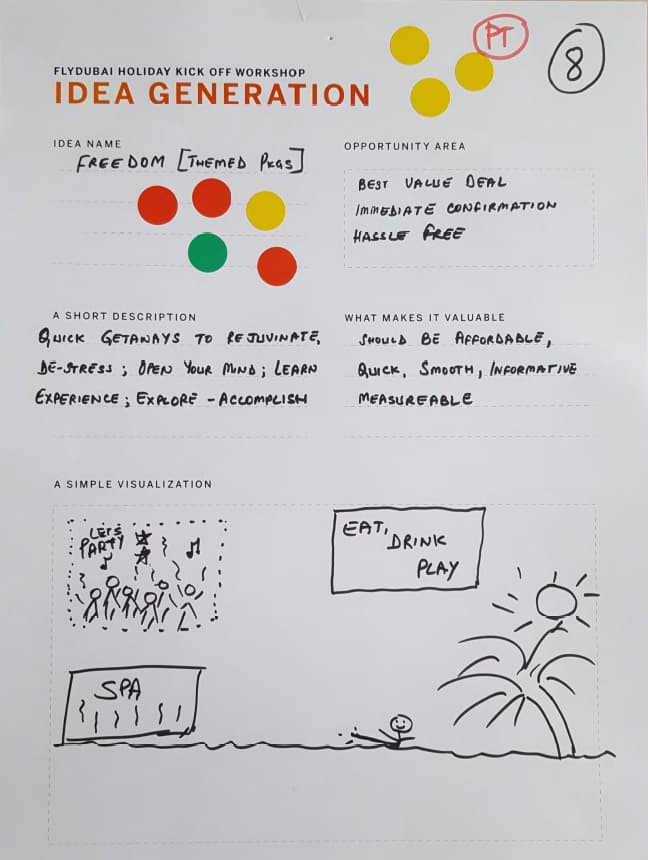 PT
8
FLYDUBAI HOLIDAY KICK OFF WORKSHOP
IDEA GENERATION
IDEA NAME
FREEDOM [THEMED PKGS]
OPPORTUNITY AREA
BEST VALUE DEAL
IMMEDIATE CONFIRMATION
HASSLE FREE
A SHORT DESCRIPTION
QUICK GETAWAYS TO REJUVINATE,
DE-STRESS ; OPEN YOUR MIND ; LEARN
EXPERIENCE ; EXPLORE - ACCOMPLISH
WHAT MAKES IT VALUABLE
SHOULD BE AFFORDABLE,
QUICK, SMOOTH, INFORMATIVE
MEASUREABLE
A SIMPLE VISUALIZATION
LETS
PARTY
EAT,
DRINK
PLAY
SPA